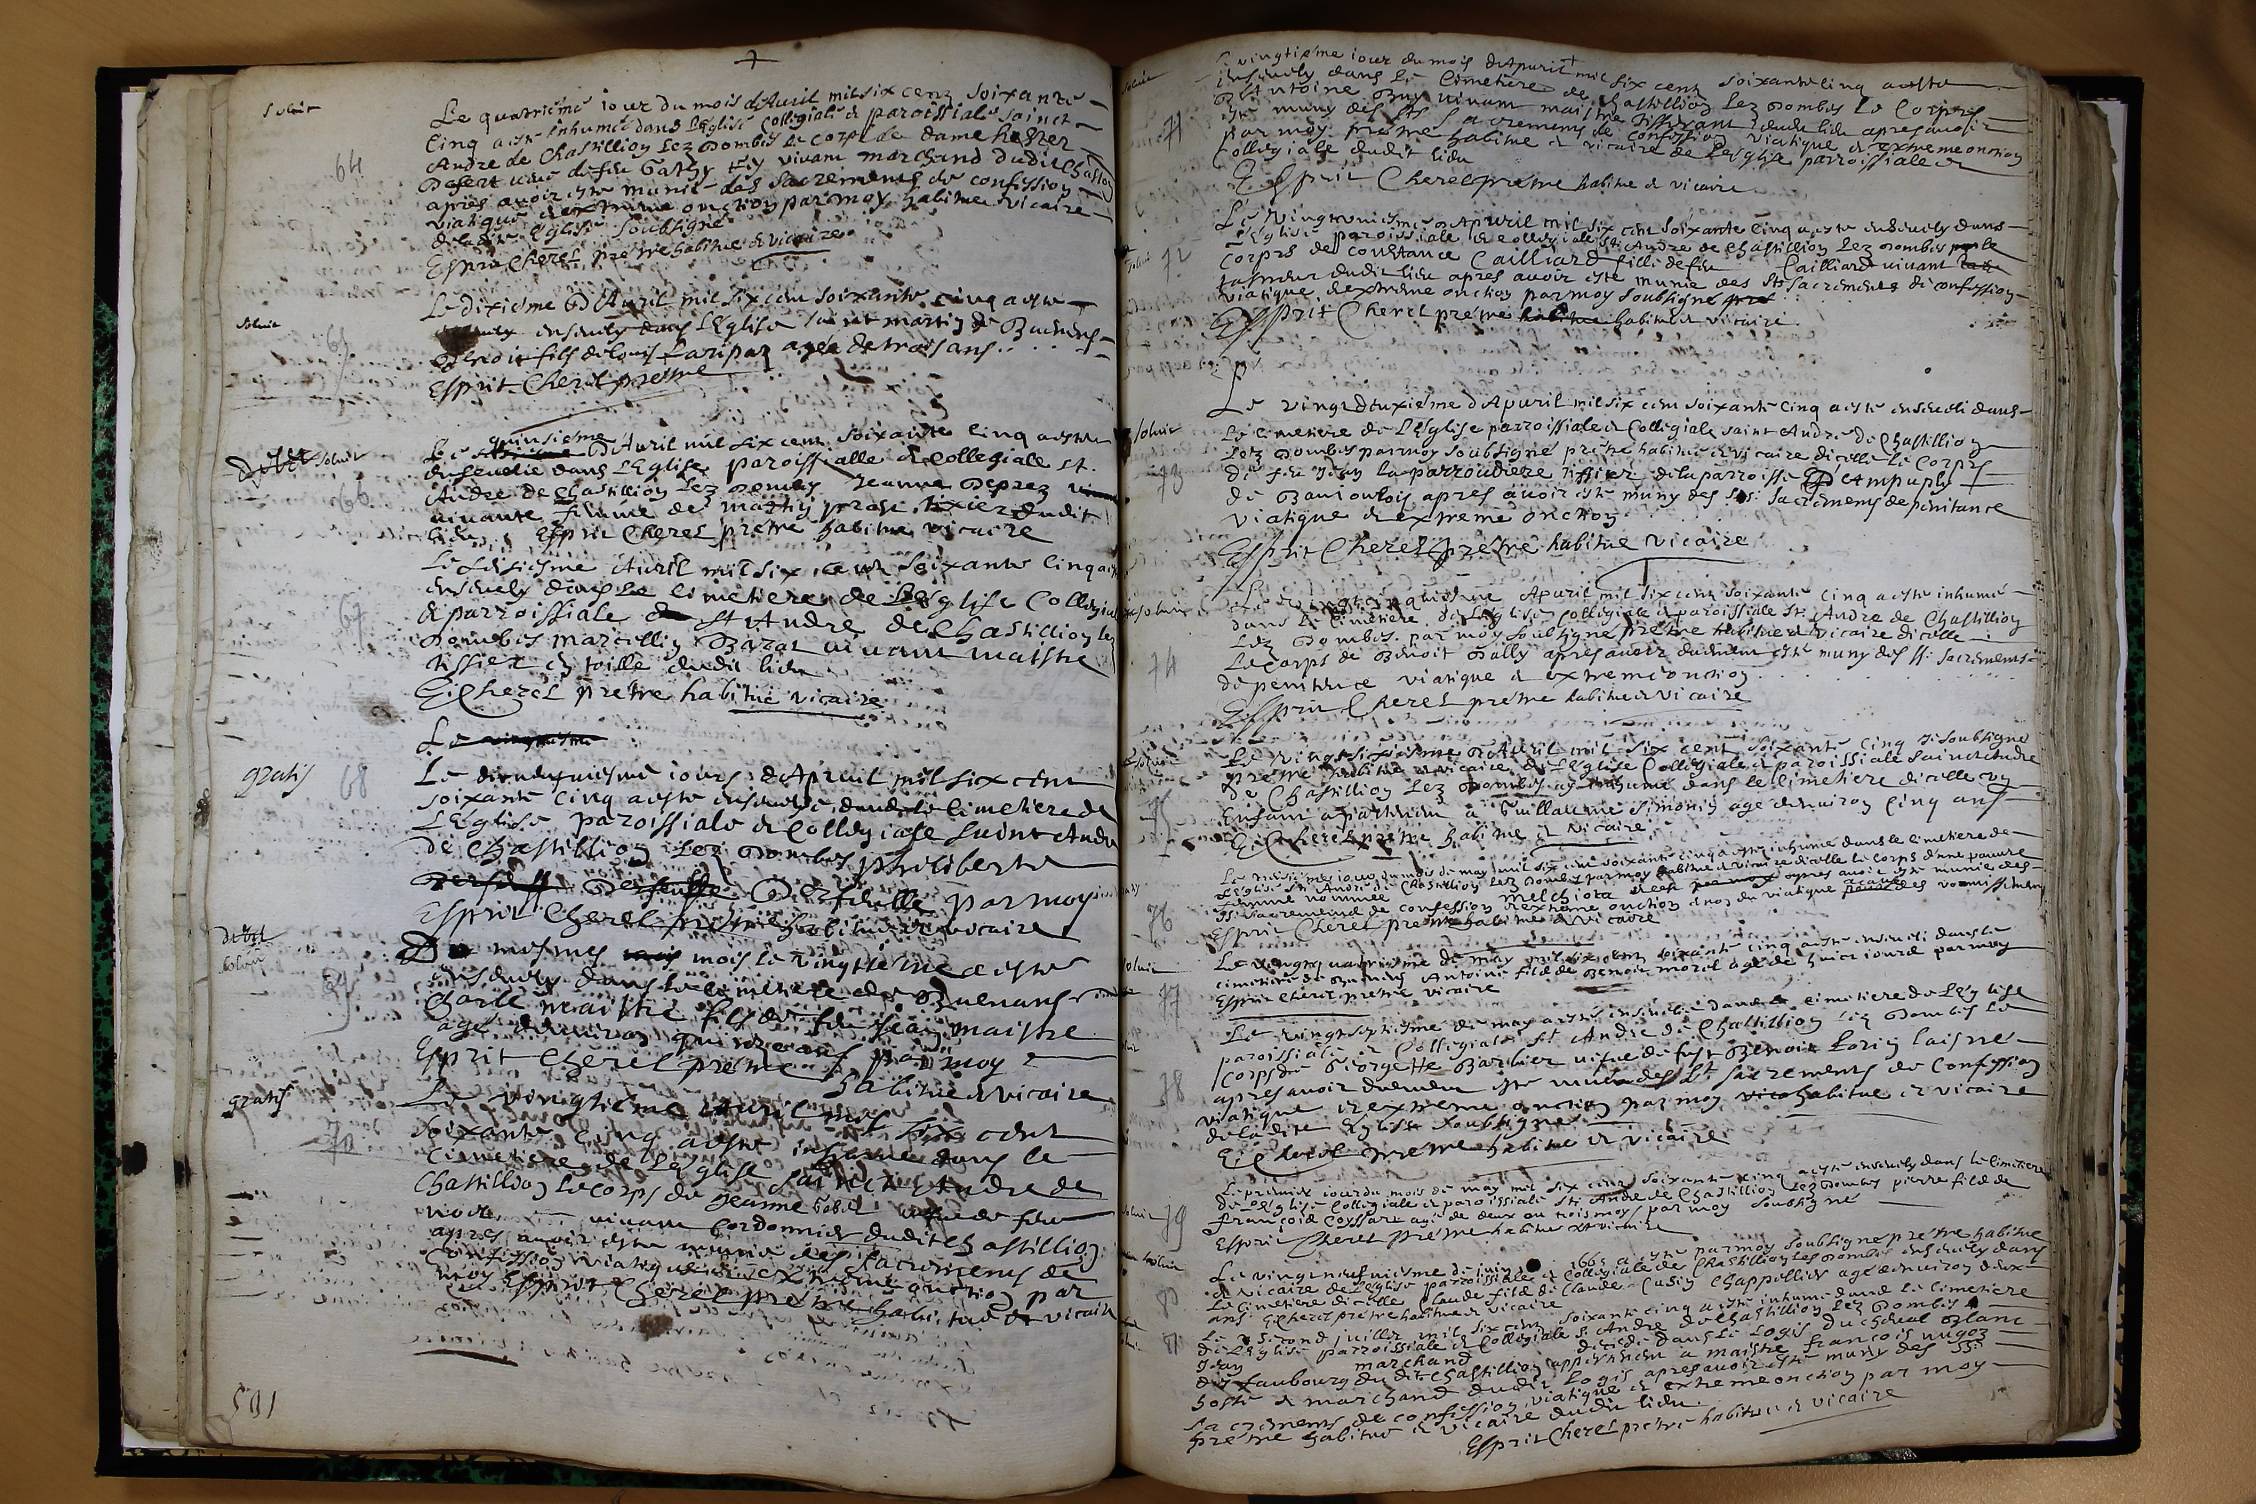 solvit
64
Le quatriéme iour du mois d'Auril mil six cenz soixante
Cinq a esté Inhumée dans l'Eglise Collegiale & paroissiale sainct
Andre de Chastillion Lez Dombes le corps de dame hester
Desert de feu Gathy vivant marchand dudit Chastillon
apres avoir este munie des sacrements de confession
viatique & extreme onction par moy habitue & vicaire
de ladite Eglise Soubsigne
Esprit Cherel prétre habitue & vicaire
solvit
65
Le dixiéme d'Auril mil six cens soixante cinq a este
ensevely dans l'Eglise saint martin de Buenens
Benoit fils de louis age de trois ans
Esprit Cherel pretre
debet solvit
66
Le quinsieme d'Auril mil six cent soixante cinq a este
ensevelie dans l'Eglise paroissialle & Collegialle st.
Andre de Chastillion Lez Dombes Jeanne Deprez
vivante femme de martin tixier dudit
lieu Esprit Cherel prétre habitue vicaire
67
Le sesiesme Auril mil six cent Soixante Cinq a este
ensevely dans le cimetiere de l'Esglise Collegiale
& parroissiale de st Andre de Chastillion lez
Dombes marcellin Barat vivant maistre
tissier en toille dudit lieu
E. Cherel prétre habitue vicaire
Le vingtiéme
gratis
68
Le dixneufuiesme iour d'Apuril mil six cent
soixante Cinq a este ensevelie dans le Cimetiere de
l'Eglise paroissiale & Collegiale saint Andre
de Chastillion Lez Dombes philiberte
par moy
Esprit Cherel prétre habitue & vicaire
debet
solvit
Du mesmes mois le vingtiéme a este
ensevely dans le cimetiere de Buenans
Charle maistre fils de feu Jean maistre
age d'environ quinze ans par moy
Esprit Cherel prétre habitue & vicaire
gratis
70
Le vingtiéme Auril mil six cent
Soixante Cinq a este inhumé dans le
Cimetiere de l'Eglise sainct Andre de
Chastillion le corps de Jeanne Gobet vefue de feu
vivant Cordonnier dudit Chastillion
apres avoir este munie des sacrements de
Confession viatique & extreme onction par
moy Esprit Cherel prétre habitue & vicaire
501
solvit
71
Le vingtiéme iour du mois d'Apuril mil six cent soixante cinq a este
ensevely dans le Cimetiere de Chastillion Lez Dombes le Corps
d'Antoine Buy vivant maistre Tissérant dudit lieu apres avoir
este muny des sts Sacrements de Confession viatique & extreme onction
par moy prétre habitue & vicaire de l'Esglise parroissiale &
Collegiale dudit lieu
Esprit Cherel prétre habitue & vicaire
solvit
72
Le vingtuniéme d'Apuril mil six cent soixante cinq a este ensevely dans
l'Eglise paroissiale & collegiale st Andre de Chastillion Lez Dombes le
Corps de Constance Cailliard fille de feu Cailliard vivant
dudit lieu apres avoir este munie des sts Sacrements de confession
viatique & extreme onction par moy soubsigne
Esprit Cherel pretre habitue & vicaire
solvit
73
Le vingtdeuxiéme d'Apuril mil six cent soixante Cinq a este enseveli dans
le cimetiere de l'Eglise parroissiale & Collegiale saint Andre de Chastillion
Lez Dombes par moy soubsigné prétre habitue & vicaire d'icelle le Corps
de feu Jean la parroudiere tissier de la parroisse
de Baujoulois apres avoir este muny des sts: sacremens de penitance
viatique & extreme onction
Esprit Cherel prétre habitue vicaire
solvit
74
Le vingtcinquiéme Apuril mil six cens soixante cinq a este inhumé
dans le cimetiere de l'Eglise collegiale & paroissiale st. Andre de Chastillion
Lez Dombes par moy soubsigne prétre habitue & vicaire d'icelle
Le corps de Benoit Bally apres avoir duement este muny des ss: Sacrements
de penitence viatique & extreme onction
Esprit Cherel prétre habitue & vicaire
solvit
75
Le vingtsixiesme d'Auril mil six cent soixante cinq Je soubsigne
prétre habitue & vicaire de l'Eglise Collegiale & paroissiale sainct Andre
de Chastillion Lez Dombes ay inhumé dans le Cimetiere d'icelle un
Enfant apartenant à Guillaume Simonin age d'environ Cinq ans
E. Cherel prétre habitue & vicaire
76
Le iour du mois de may mil six cent soixante cinq a este inhume dans le cimetiere de
l'Eglise St Andre de Chastillion Lez Dombes par moy habitue & vicaire d'icelle le corps d'une pauvre
femme nommée melchiota apres avoir este munie des
ss sacremens de confession & extreme onction & non du viatique à cause des vomissemens
Esprit Cherel prétre habitue & vicaire
solvit
77
Le vingtquatriéme de may mil six cent soixante cinq a este enseveli dans le
cimetiere de Buenens Antoine fils de Benoit morel age de huict iours par moy
Esprit Cherel prétre vicaire
78
Le vingtseptiesme de may a esté ensevelie dans le cimetiere de l'Eglise
paroissiale & Collegiale st Andre de Chastillion Lez Dombes le
corps de Georgette Barbier vefue de feu Benoit Lorin laisné
apres avoir duement este munie des st Sacrements de Confession
viatique & extreme onction par moy habitue & vicaire
de la dite Eglise soubsigné
E. Cherel prétre habitue & vicaire
solvit
79
Le premier iour du mois de may mil six cens soixante cinq a este ensevely dans le cimetiere
de l'Eglise Collegiale & paroissiale St. Andre de Chastillion Lez Dombes pierre fils de
François Coyssart age de deux ou trois moys par moy soubsigné
Esprit Cherel prétre habitue & vicaire
solvit
80
Le vingtneufuiesme de juin 1665 a este par moy soubsigne prestre habitue
& vicaire de l'Eglise parroissiale & Collegiale de Chastillion Lez Dombes ensevely dans
le Cimetiere d'icelle Claude fils de Claude Cusin Chappellier age d'environ deux
ans E. Cherel prétre habitue & vicaire
81
Le second juillet mil six cent soixante cinq a esté inhumé dans le cimetiere
de l'Eglise parroissiale & Collegiale S. Andre de Chastillion Lez Dombes
Jean marchand decede dans le Logis du cheval Blanc
du faubourg du dit Chastillion appartenant à maistre francois nugoz
hoste & marchand dudit Logis apres avoir este muny des SS:
Sacrements de confession viatique & extreme onction par moy
prétre habitué & vicaire dudit lieu.
Esprit Cherel prétre habitue & vicaire